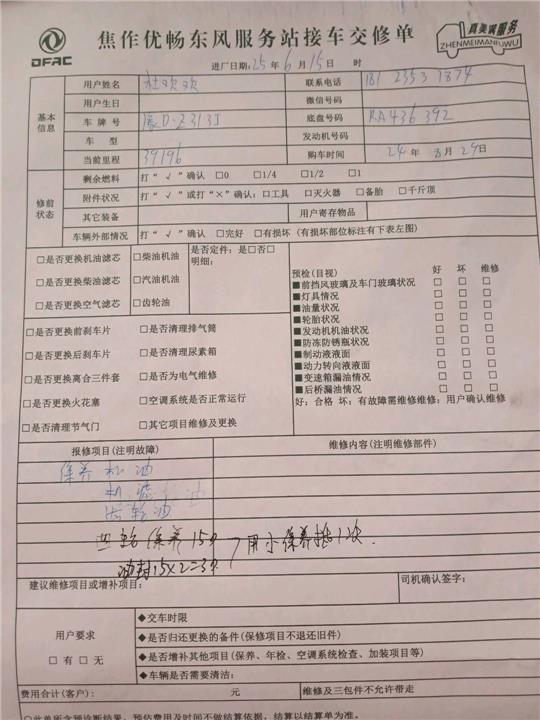 DFAC
焦作优畅东风服务站接车交修单
真美满服务
ZHENMEIMANFUWU
进厂日期:25年6月15日 时
基本信息
用户姓名 杜欢欢 联系电话 181 2353 1874
用户生日 微信号码
车牌号 豫D-Z313J 底盘号码 RA436392
车型 发动机号码
当前里程 39196 购车时间 24年8月29日
修前状态
剩余燃料 打“√”确认 □0 □1/4 □1/2 □1
附件状况 打“√”或打“×”确认:□工具 □灭火器 □备胎 □千斤顶
其它装备 用户寄存物品
车辆外部情况 打“√”确认 □完好 □有损坏(有损坏部位标注有下表左图)
□是否更换机油滤芯 □柴油机油 是否定件:是□否□
明细:
□是否更换柴油滤芯 □汽油机油
□是否更换空气滤芯 □齿轮油
预检(目视) 好 坏 维修
■前挡风玻璃及车门玻璃状况 □ □ □
■灯具情况 □ □ □
■油量状况 □ □ □
■轮胎状况 □ □ □
■发动机机油状况 □ □ □
■防冻防锈瓶状况 □ □ □
■制动液液面 □ □ □
■动力转向液液面 □ □ □
■变速箱漏油情况 □ □ □
■后桥漏油情况 □ □ □
好:合格 坏:有故障需维修维修:用户确认维修
□是否更换前刹车片 □是否清理排气筒
□是否更换后刹车片 □是否清理尿素箱
□是否更换离合三件套 □是否为电气维修
□是否更换火花塞 □空调系统是否正常运行
□是否清理节气门 □其它项目维修及更换
报修项目(注明故障) 维修内容(注明维修部件)
保养 机油
机滤
齿轮油
四轮保养150 用小保养抵1次.
油封15×2=30
建议维修项目或增补项目: 司机确认签字:
用户要求
□有□无
◆交车时限
◆是否归还更换的备件(保修项目不退还旧件)
◆是否增补其他项目(保养、年检、空调系统检查、加装项目等)
◆车辆是否需要清洁:
费用合计(客户): 元 维修及三包件不允许带走
○此单所含预诊断结果、预估费用及时间不做结算依据,结算以结算单为准。